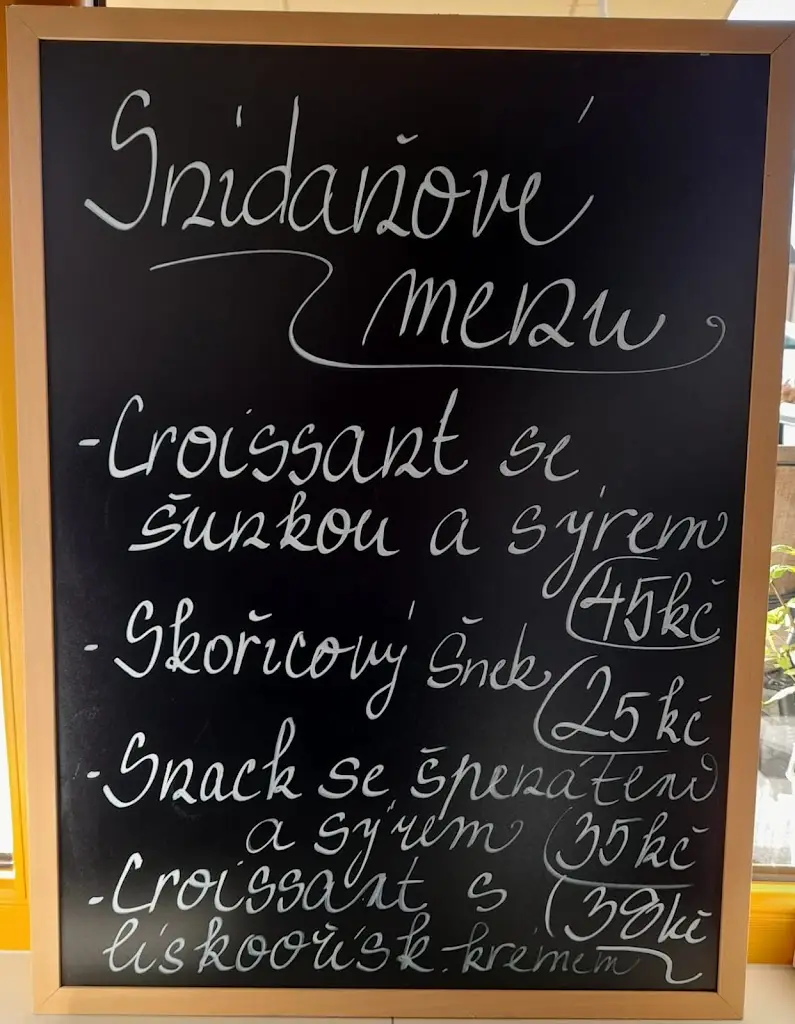 Snídaňové
menu
- Croissant se
šunkou a sýrem
45kč
- Skořicový šnek
25kč
- Snack se špenátem
a sýrem 35kč
- Croissant s 38kč
lískooříšk. krémem